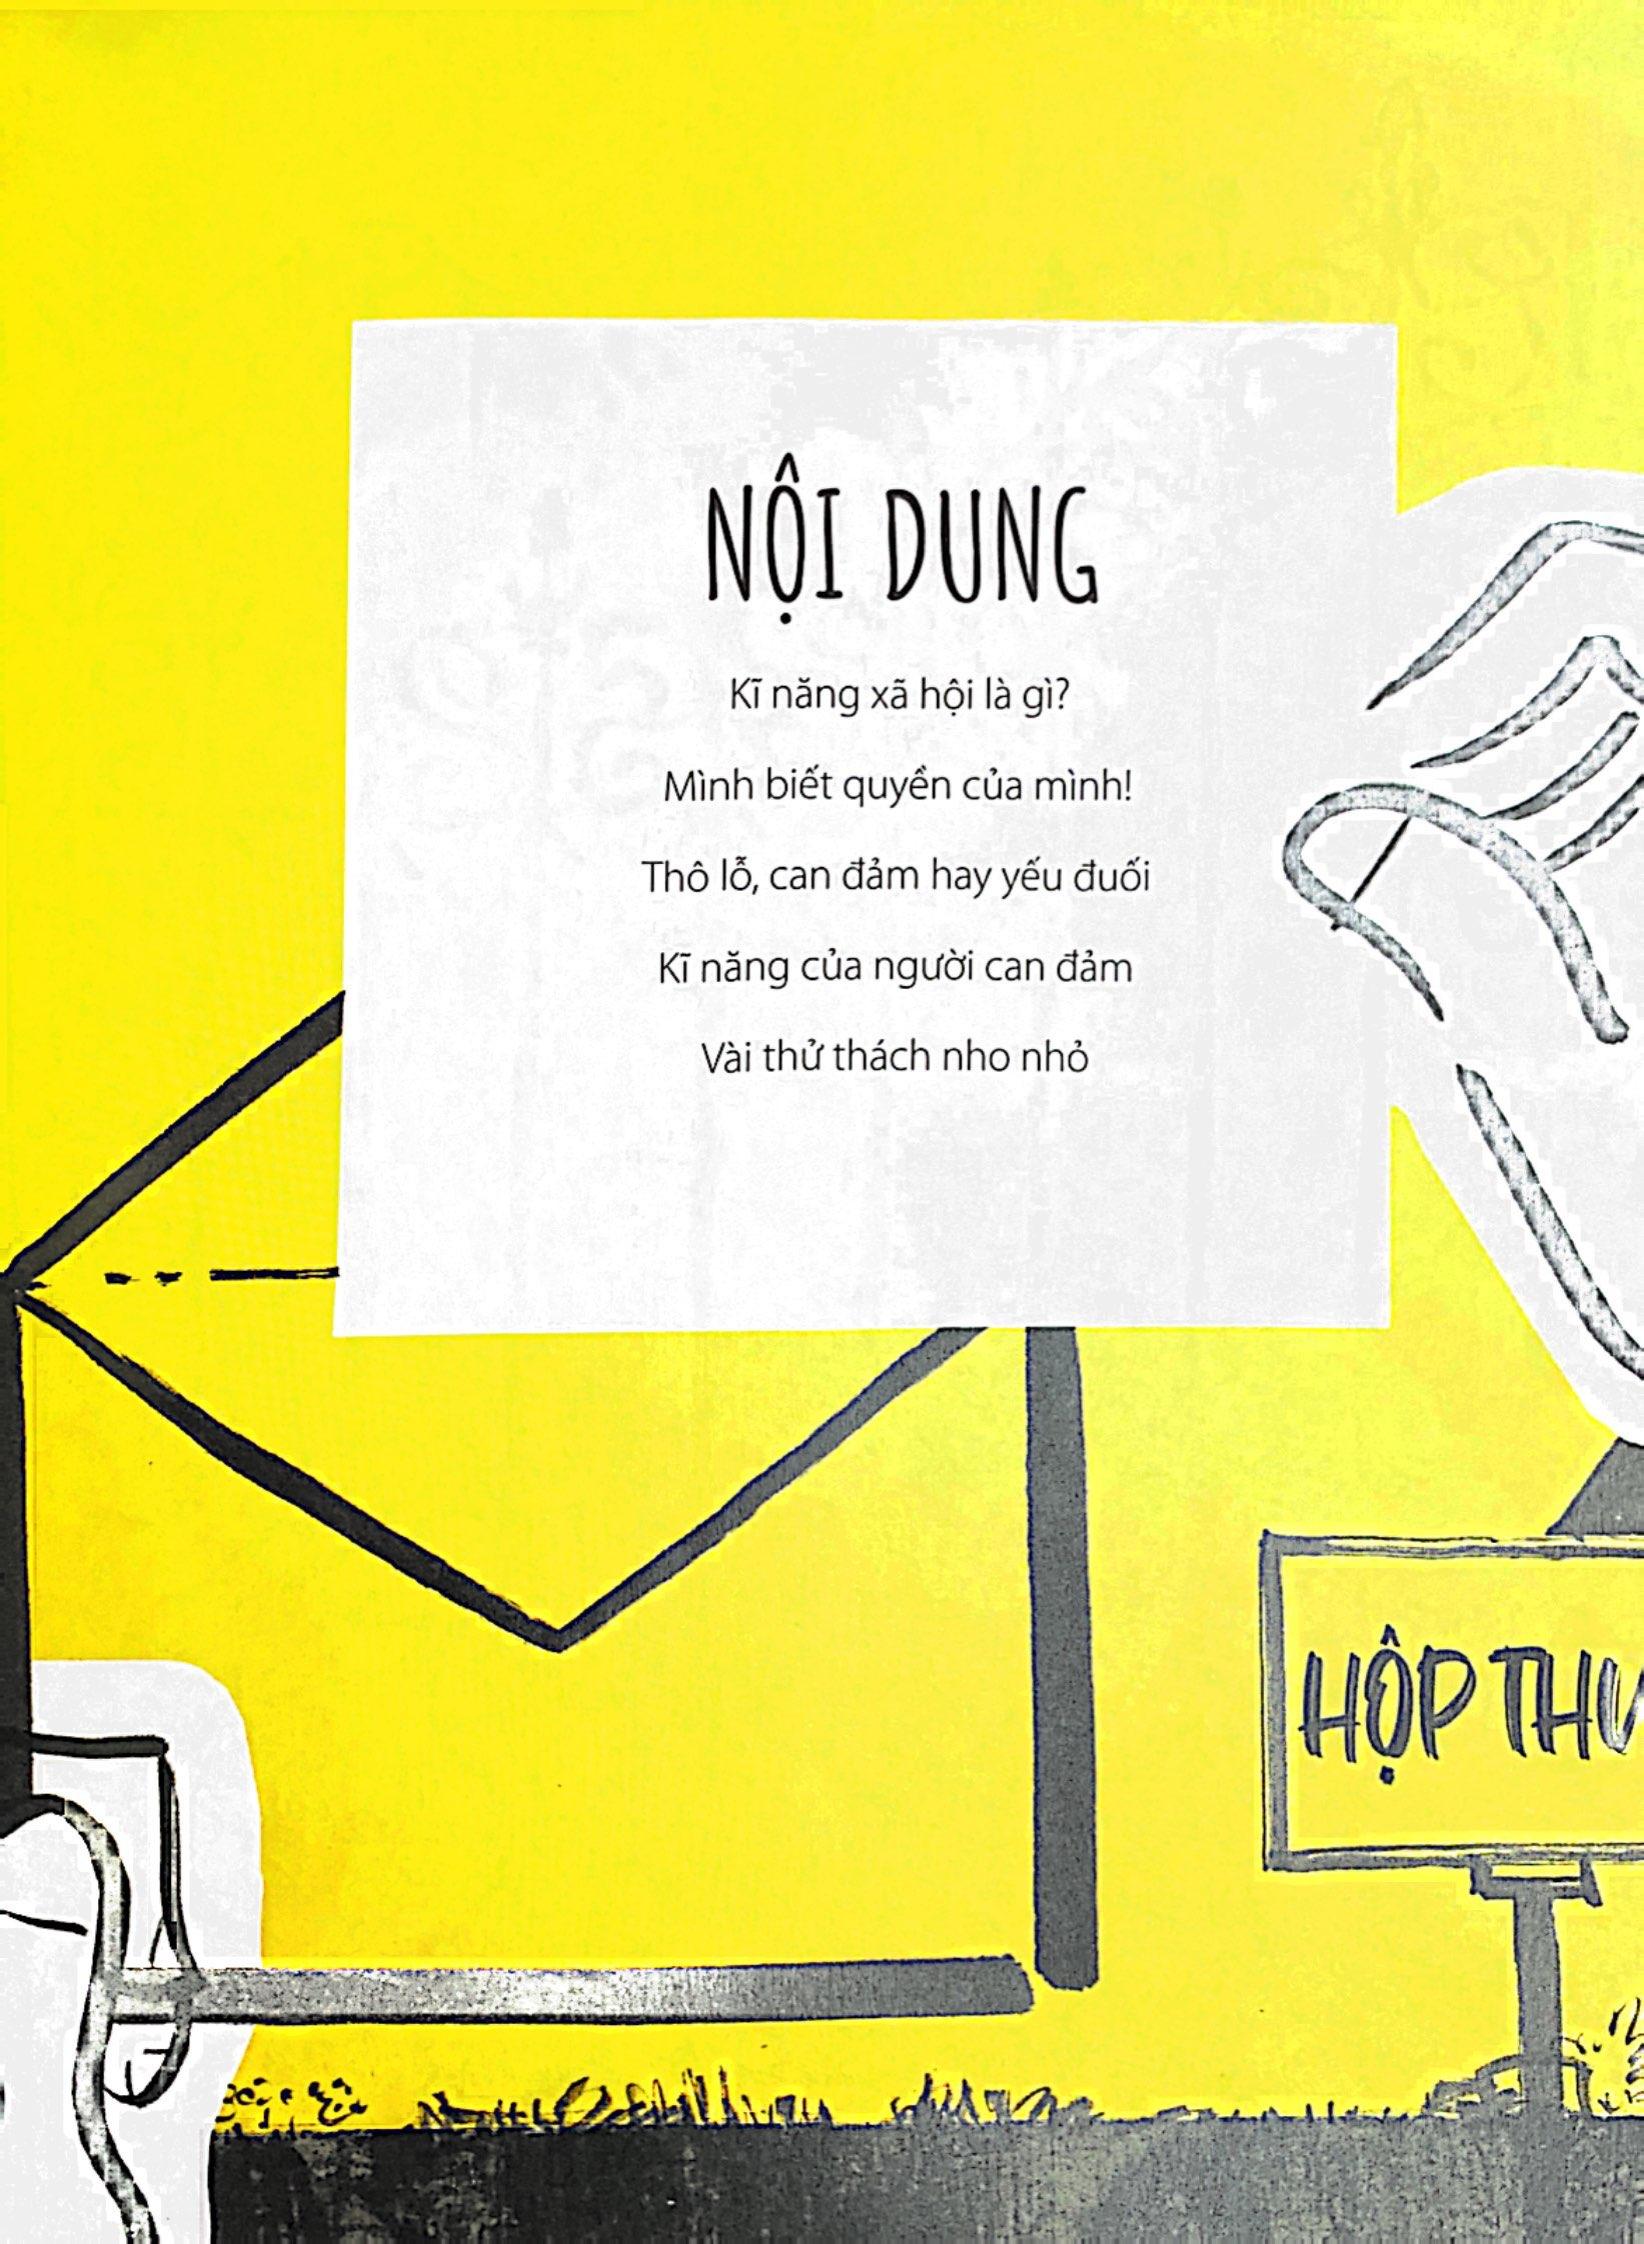 NỘI DUNG
Kĩ năng xã hội là gì?
Mình biết quyền của mình!
Thô lỗ, can đảm hay yếu đuối
Kĩ năng của người can đảm
Vài thử thách nho nhỏ
HỘP THƯ